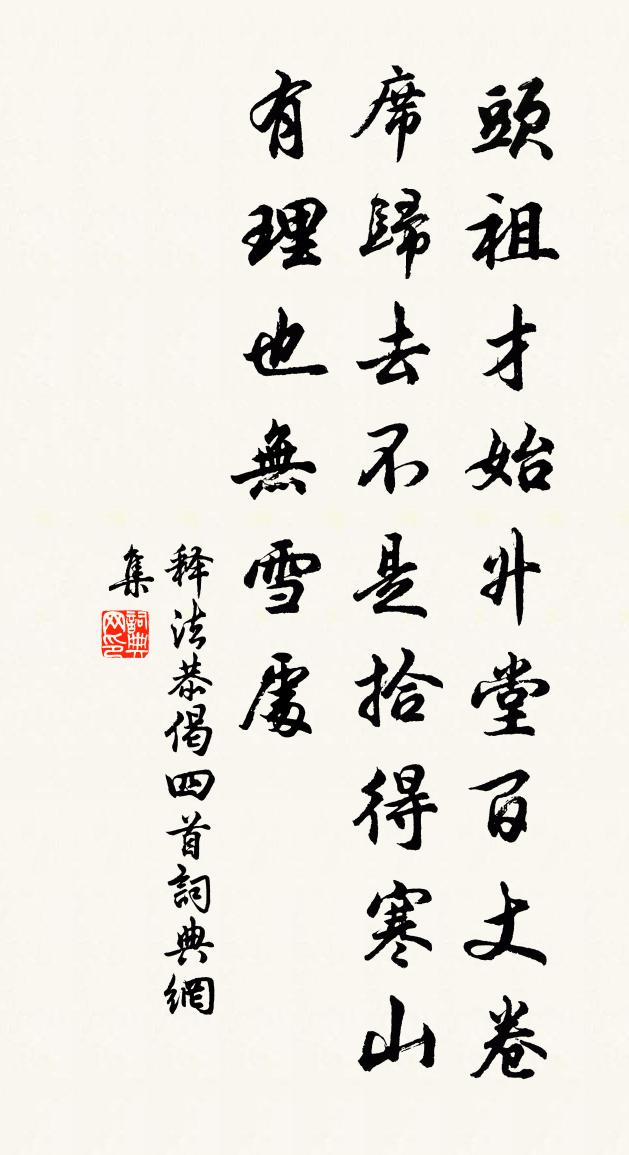 頭祖才始升堂百丈卷
席歸去不是拾得寒山
有理也無雪處
释法恭偈四首詞典網
集
詞典网印